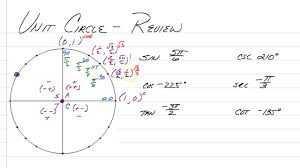 UNIT CIRCLE - REVIEW
(0, 1)
90
π/2
(1/2, √3/2)
(√2/2, √2/2)
(√3/2, 1/2)
60
45
30
(1, 0)
(-+)
(++)
S A
T C
(--)
(+-)
SIN 5π/6
CSC 210°
COS -225°
SEC -π/3
TAN -3π/2
COT -135°